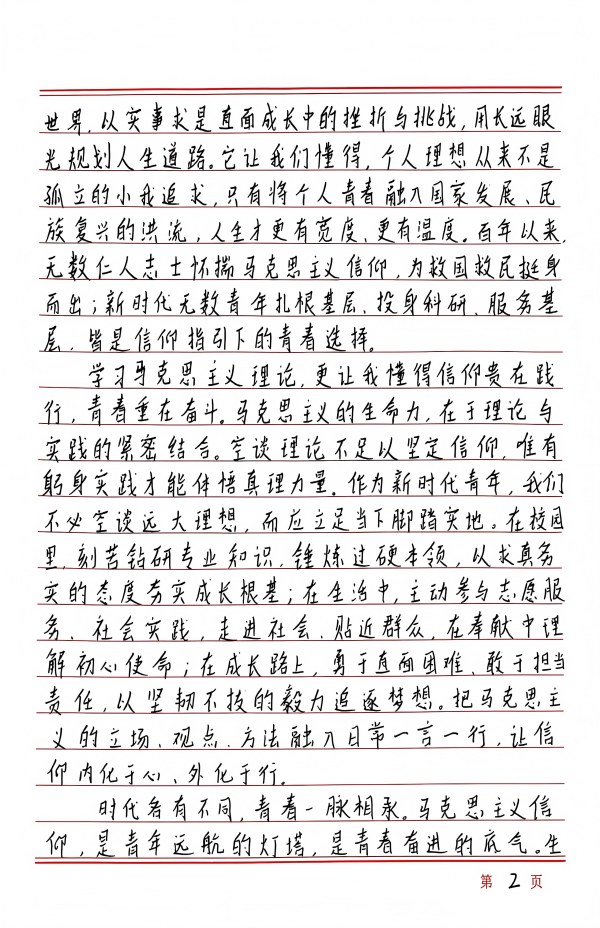 世界，以实事求是直面成长中的挫折与挑战，用长远眼
光规划人生道路。它让我们懂得，个人理想从来不是
孤立的小我追求，只有将个人青春融入国家发展、民
族复兴的洪流，人生才更有宽度、更有温度。百年以来，
无数仁人志士怀揣马克思主义信仰，为救国救民挺身
而出；新时代无数青年扎根基层、投身科研、服务基
层，皆是信仰指引下的青春选择。
学习马克思主义理论，更让我懂得信仰贵在践
行，青春重在奋斗。马克思主义的生命力，在于理论与
实践的紧密结合。空谈理论不足以坚定信仰，唯有
躬身实践才能体悟真理力量。作为新时代青年，我们
不必空谈远大理想，而应立足当下脚踏实地。在校园
里，刻苦钻研专业知识，锤炼过硬本领，以求真务
实的态度夯实成长根基；在生活中，主动参与志愿服
务、社会实践，走进社会、贴近群众，在奉献中理
解初心使命；在成长路上，勇于直面困难、敢于担当
责任，以坚韧不拔的毅力追逐梦想。把马克思主
义的立场、观点、方法融入日常一言一行，让信
仰内化于心、外化于行。
时代各有不同，青春一脉相承。马克思主义信
仰，是青年远航的灯塔，是青春奋进的底气。生
第 2 页